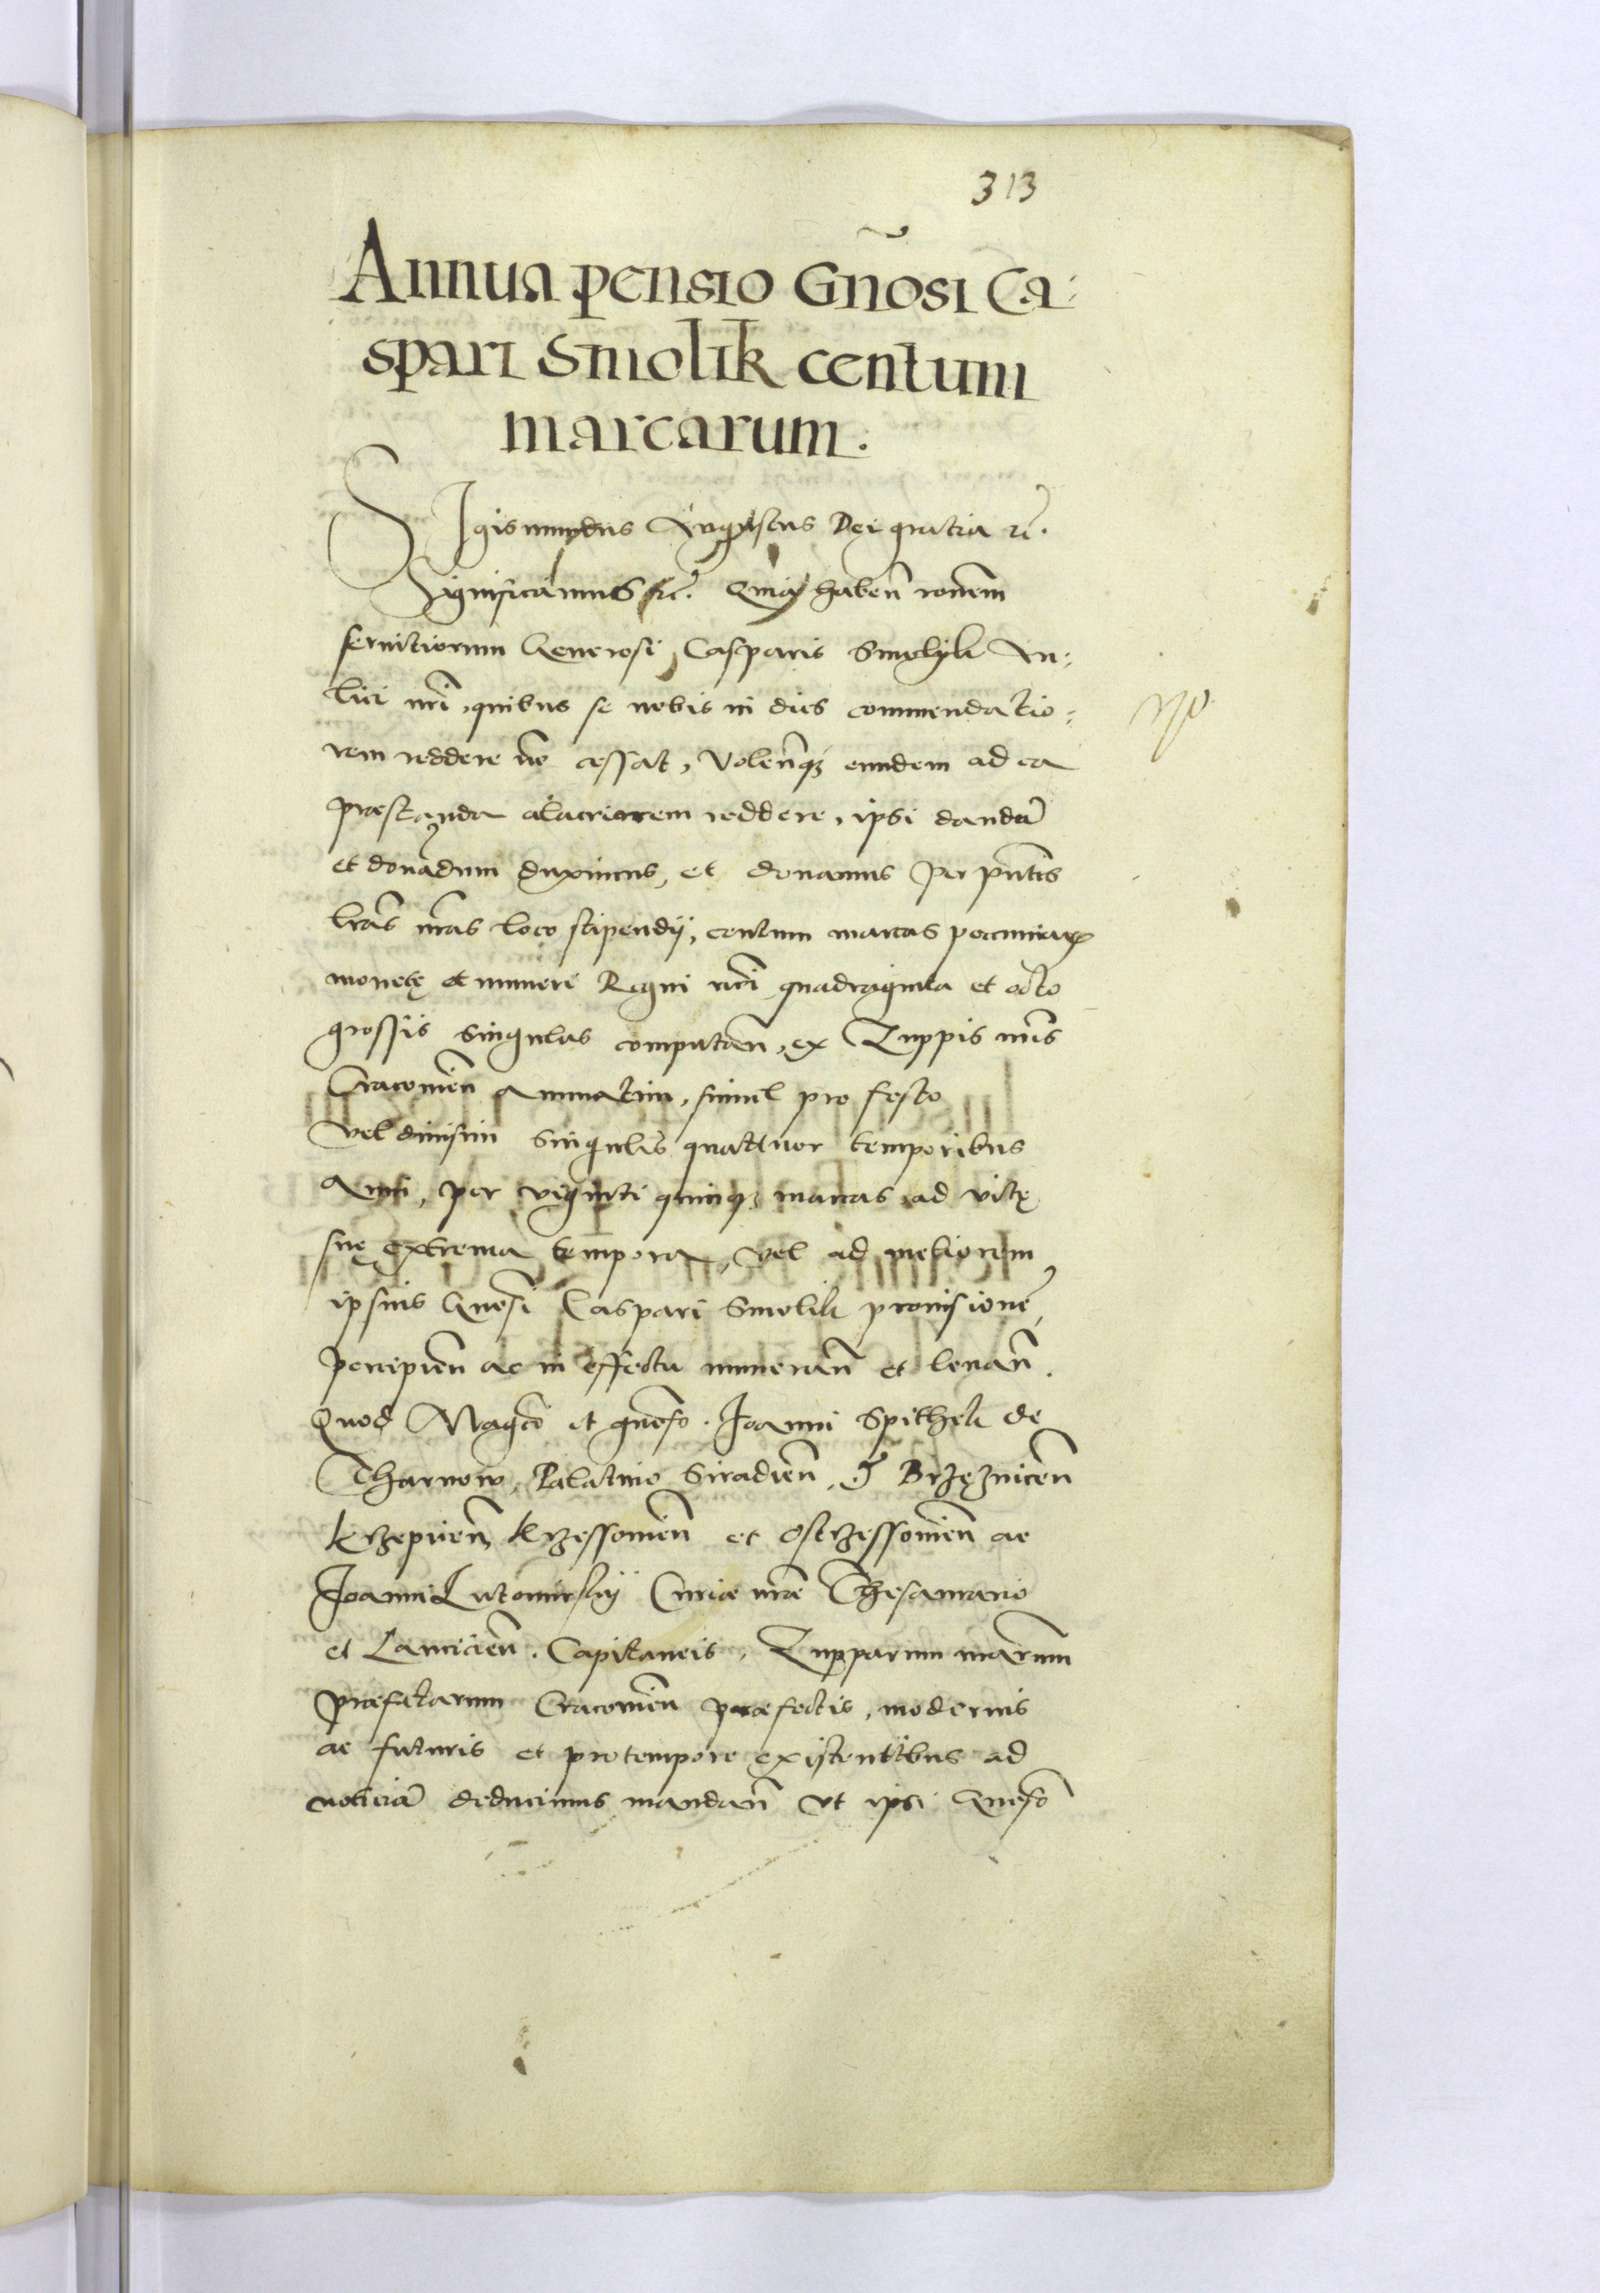 313
Annua pensio Gnosi Ca:
spari Smolik centum
marcarum.
Sigismundus Augustus Dei gratia rc̃.
Significamus rc̃. Quia habeñ ronem
seruitiorum Generosi Casparis Smolyk Au:
lici nr̃i, quibus se nobis in dies commendatio:
rem reddere nõ cessat, Volen̄q3 eundem ad ea
præstanda alacriorem reddere, ipsi dandũ
et donãdum duximus, et donamus per pñtes
lrãs nrãs loco stipendÿ, centum marcas pecuniarꝝ
monetę et numeri Regni nr̃i quadraginta et octo
grossis singulas computañ, ex Zuppis nrĩs
Cracouieñ annuatim, simul pro festo
vel diuisim singulis quattuor temporibus
Anni, per viginti quinq3 marcas ad vitę
suę extrema tempora, vel ad meliorem
ipsius Gnosĩ Caspari Smolik prouisionẽ,
percipieñ ac in effectu numerañ et leuañ.
Quod Magcõ et gnoso. Joanni Spithek de
Tharnow, Palatino Siradieñ, & Brzęznicẽn
Krzepiceñ Krzessouieñ et Ostrzessouieñ ac
Joanni Lutomirskÿ Curiæ nræ Thesaurario
et Lancicieñ. Capitaneis, Zupparum nrarum
præfatarum Cracouieñ præfectis, modernis
ac futuris et pro tempore existentibus ad
noticiã deducimus mandañ vt ipsi Gnosõ